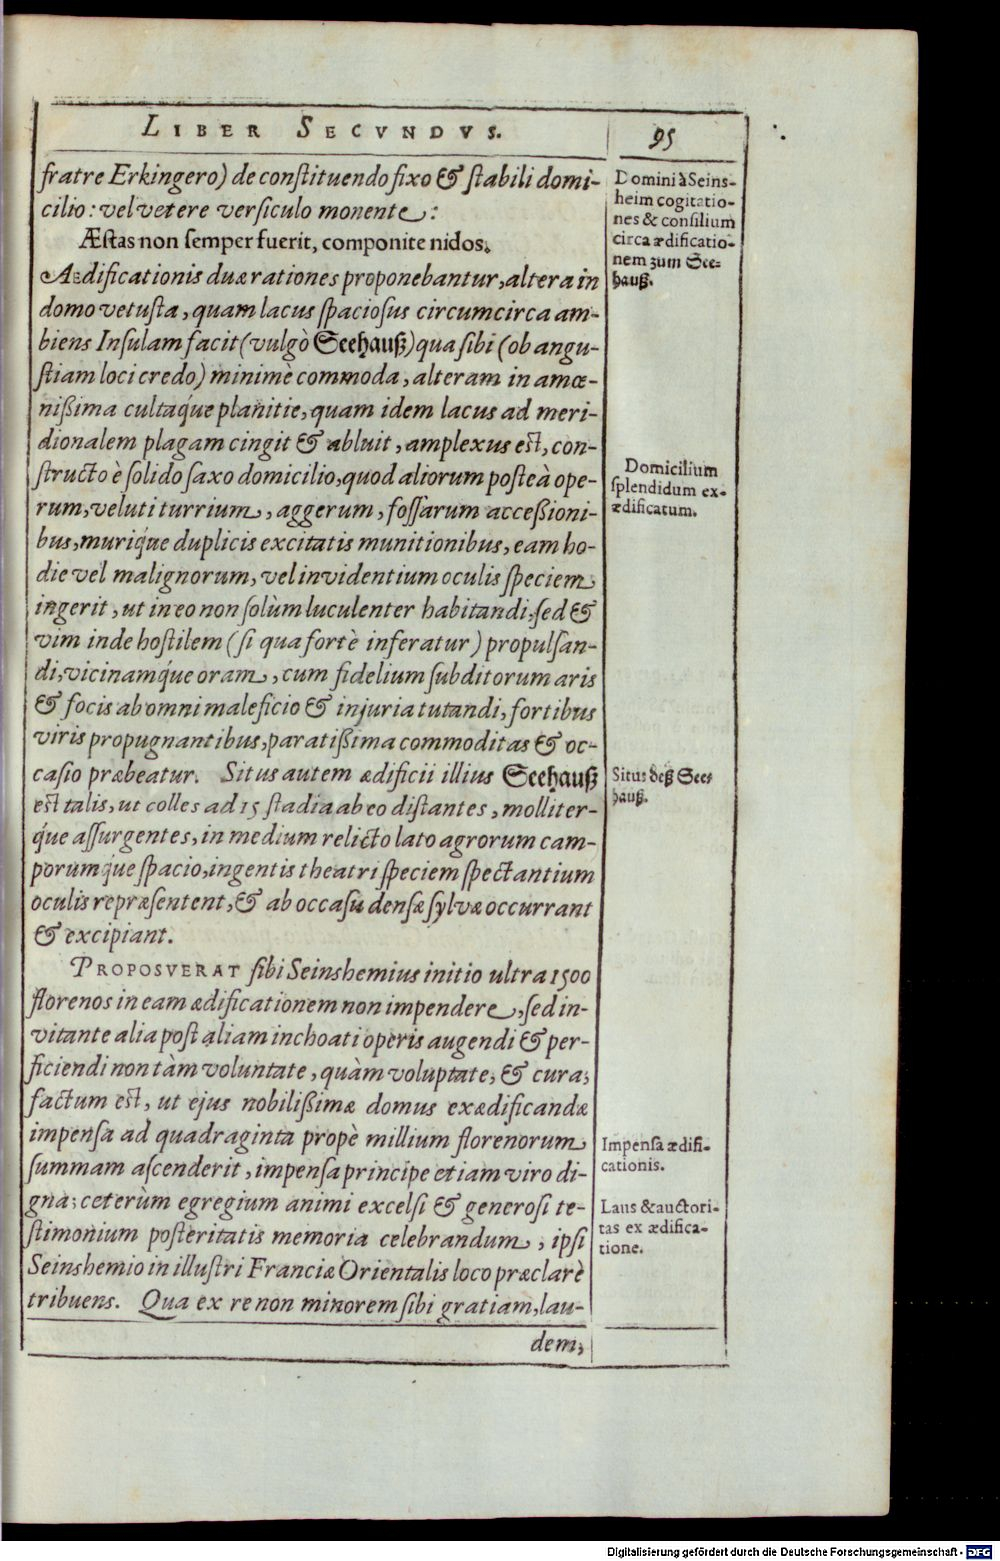 LIBER SECVNDVS.
95
fratre Erkingero) de constituendo fixo & stabili domi-
cilio: vel vetere versiculo monente:
Æstas non semper fuerit, componite nidos.
Ædificationis duæ rationes proponebantur, altera in
domo vetusta, quam lacus spaciosus circumcirca am-
biens Insulam facit (vulgò Seehauß) qua sibi (ob angu-
stiam loci credo) minimè commoda, alteram in amœ-
nißima cultaq́ue planitie, quam idem lacus ad meri-
dionalem plagam cingit & abluit, amplexus est, con-
structo è solido saxo domicilio, quod aliorum posteà ope-
rum, veluti turrium, aggerum, fossarum acceßioni-
bus, muriq́ue duplicis excitatis munitionibus, eam ho-
die vel malignorum, vel invidentium oculis speciem
ingerit, ut in eo non solùm luculenter habitandi, sed &
vim inde hostilem (si qua fortè inferatur) propulsan-
di, vicinamq́ue oram, cum fidelium subditorum aris
& focis ab omni maleficio & injuria tutandi, fortibus
viris propugnantibus, paratißima commoditas & oc-
casio præbeatur. Situs autem ædificii illius Seehauß
est talis, ut colles ad 15 stadia ab eo distantes, molliter-
q́ue assurgentes, in medium relicto lato agrorum cam-
porumq́ue spacio, ingentis theatri speciem spectantium
oculis repræsentent, & ab occasu densæ sylvæ occurrant
& excipiant.
PROPOSVERAT sibi Seinshemius initio ultra 1500
florenos in eam ædificationem non impendere, sed in-
vitante alia post aliam inchoati operis augendi & per-
ficiendi non tàm voluntate, quàm voluptate, & cura,
factum est, ut ejus nobilißimæ domus exædificandæ
impensa ad quadraginta propè millium florenorum
summam ascenderit, impensa principe etiam viro di-
gna; ceterùm egregium animi excelsi & generosi te-
stimonium posteritatis memoria celebrandum, ipsi
Seinshemio in illustri Franciæ Orientalis loco præclarè
tribuens. Qua ex re non minorem sibi gratiam, lau-
dem,
Domini à Seins-
heim cogitatio-
nes & consilium
circa ædificatio-
nem zum See-
hauß.
Domicilium
splendidum ex-
ædificatum.
Situs deß See-
hauß.
Impensa ædifi-
cationis.
Laus & auctori-
tas ex ædifica-
tione.
Digitalisierung gefördert durch die Deutsche Forschungsgemeinschaft - DFG